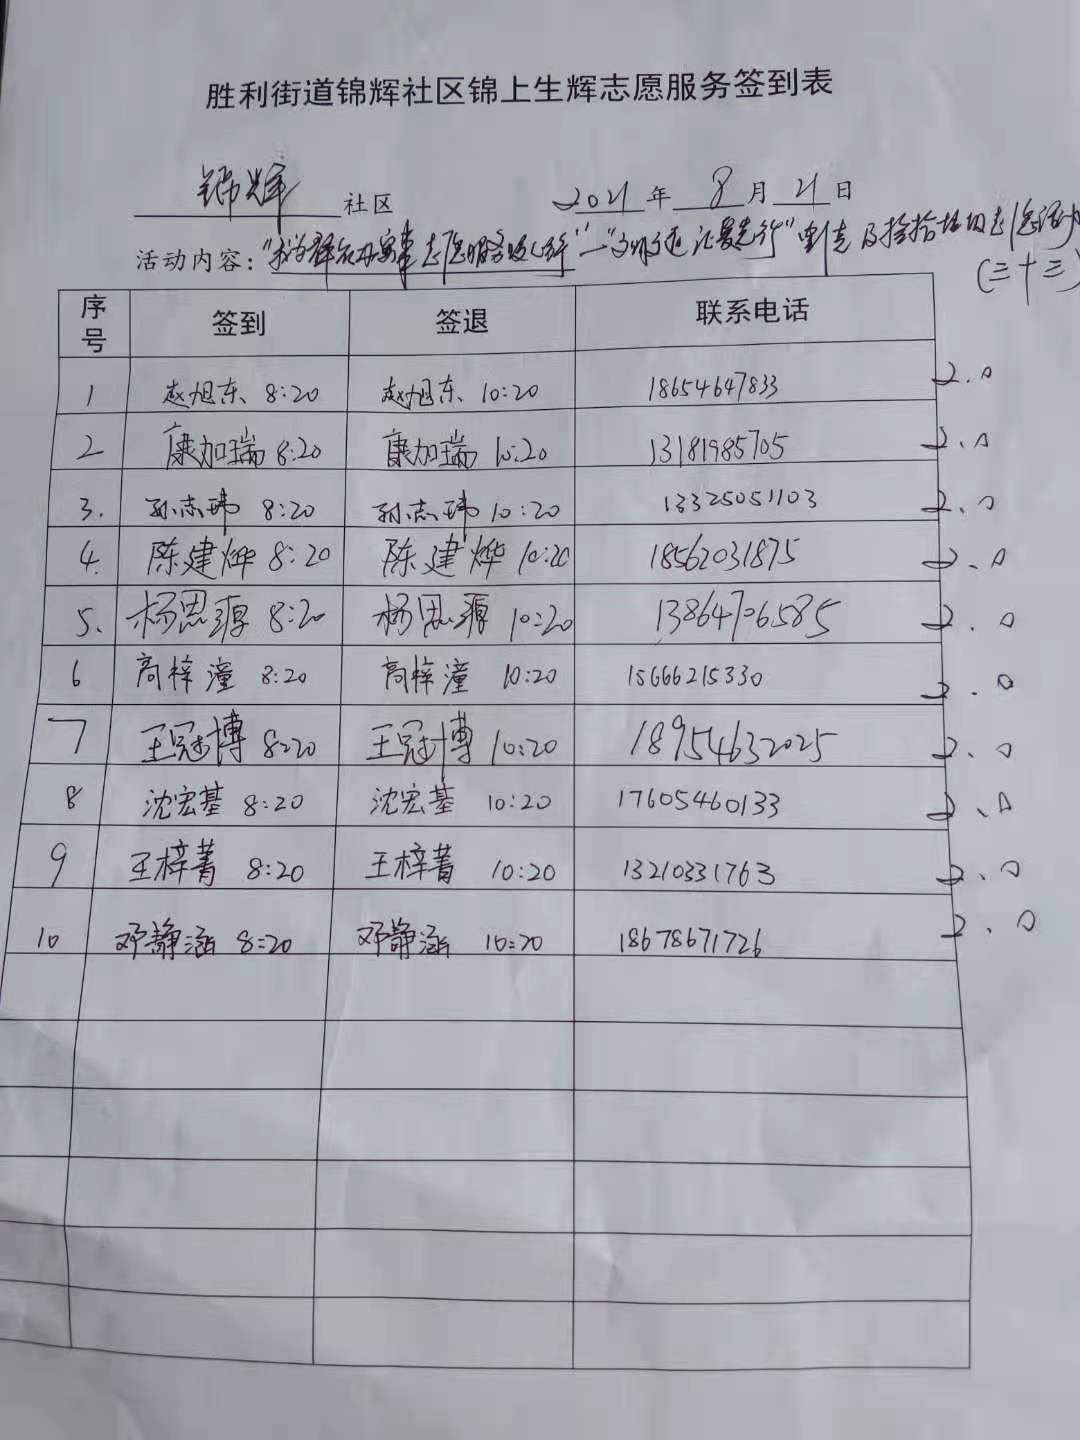 胜利街道锦辉社区锦上生辉志愿服务签到表
锦辉 社区 2021 年 8 月 21 日
活动内容："我为群众办实事志愿服务我先行"—"文明交通 让爱先行"宣传及捡拾垃圾志愿活动
(三十三)
序号 签到 签退 联系电话
1 赵旭东、8:20 赵旭东、10:20 18654647833 2.0
2 康加瑞 8:20 康加瑞 10:20 13181985705 2.0
3. 孙志玮 8:20 孙志玮 10:20 13325051103 2.0
4. 陈建烨 8:20 陈建烨 10:20 18562031875 2.0
5、 杨思源 8:20 杨思源 10:20 13864706585 2.0
6 高梓潼 8:20 高梓潼 10:20 15666215330 2.0
7 王冠博 8:20 王冠博 10:20 18954632025 2.0
8 沈宏基 8:20 沈宏基 10:20 17605460133 2.0
9 王梓菁 8:20 王梓菁 10:20 13210331763 2.0
10 邓静涵 8:20 邓静涵 10:20 18678671726 2.0